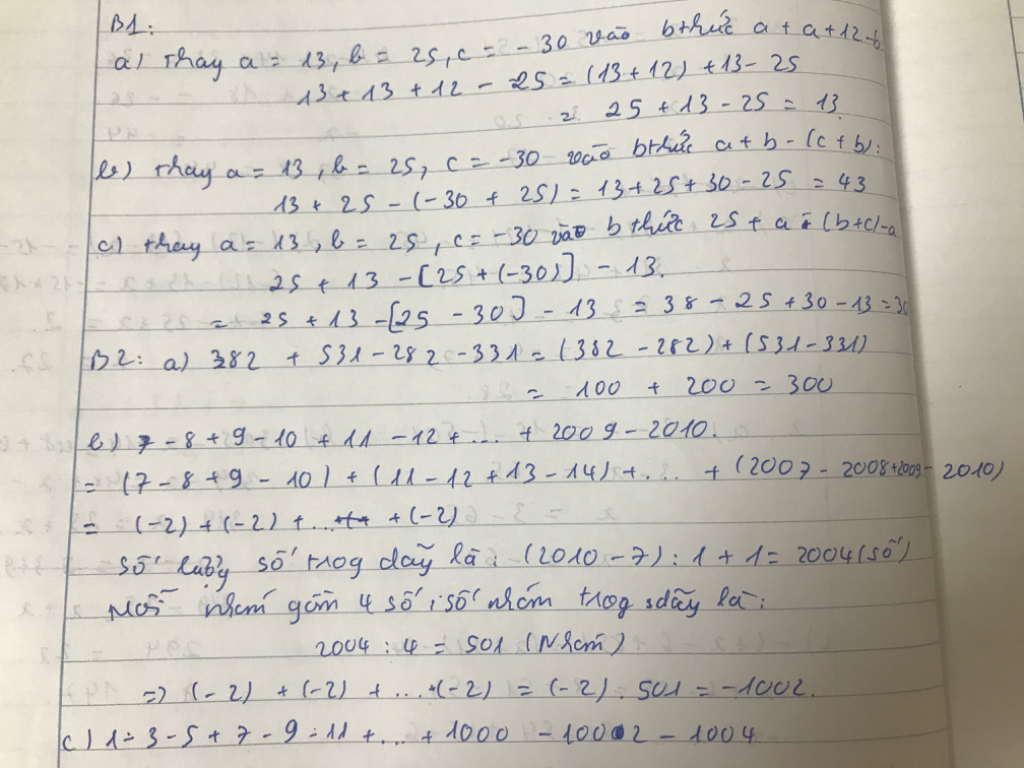 B1:
a) thay a = 13, b = 25, c = - 30 vào bthức a + a + 12 - b
13 + 13 + 12 - 25 = (13 + 12) + 13 - 25
= 25 + 13 - 25 = 13
b) thay a = 13, b = 25, c = -30 vào bthức a + b - (c + b):
13 + 25 - (-30 + 25) = 13 + 25 + 30 - 25 = 43
c) thay a = 13, b = 25, c = -30 vào bthức 25 + a - (b+c) - a
25 + 13 - [25 + (-30)] - 13.
= 25 + 13 - [25 - 30] - 13 = 38 - 25 + 30 - 13 = 30
B2: a) 382 + 531 - 282 - 331 = (382 - 282) + (531 - 331)
= 100 + 200 = 300
b) 7 - 8 + 9 - 10 + 11 - 12 + ... + 2009 - 2010.
= (7 - 8 + 9 - 10) + (11 - 12 + 13 - 14) + ... + (2007 - 2008 + 2009 - 2010)
= (-2) + (-2) + ... + (-2)
số lượng số trog dãy là: (2010 - 7) : 1 + 1 = 2004 (số)
Mỗi nhóm gồm 4 số; số nhóm trog dãy là:
2004 : 4 = 501 (Nhóm)
=> (-2) + (-2) + ... + (-2) = (-2) . 501 = -1002.
c) 1 - 3 - 5 + 7 - 9 - 11 + ... + 1000 - 1002 - 1004